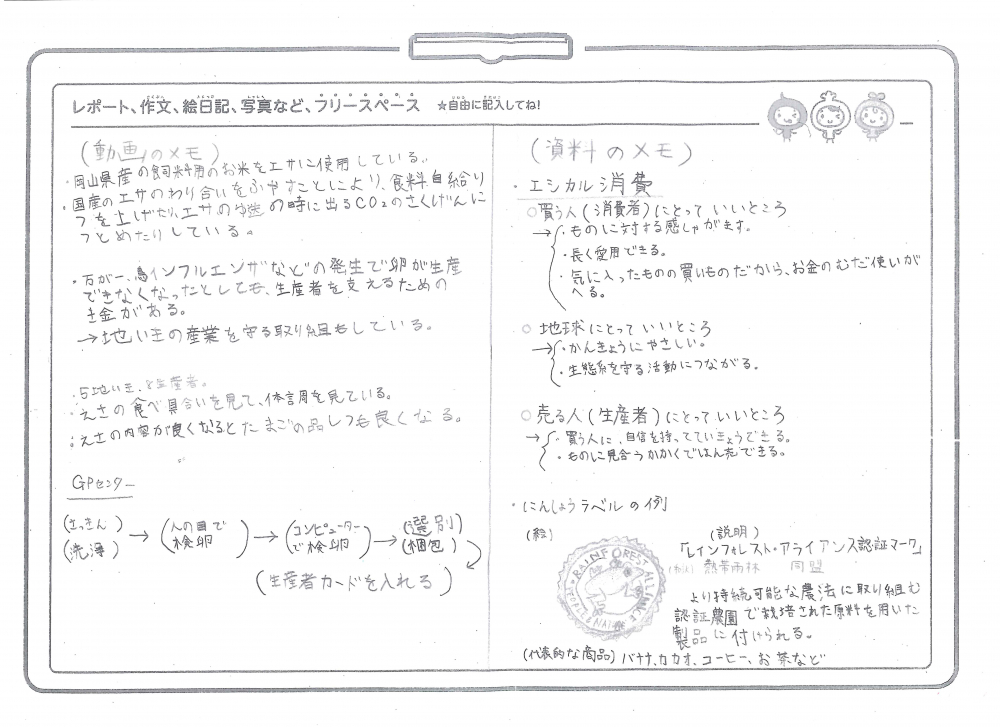 レポート、作文、絵日記、写真など、フリースペース ☆自由に記入してね!
(動画のメモ)
・岡山県産の飼料用のお米をエサに使用している。
・国産のエサのわり合いをふやすことにより、食料自給りつを上げたり、エサの
の時に出るCO2のさくげんに
つとめたりしている。
・万が一、鳥インフルエンザなどの発生で卵が生産
できなくなったとしても、生産者を支えるための
き金がある。
→地いきの産業を守る取り組もしている。
・5地いき、
生産者。
・えさの食べ具合いを見て、体調を見ている。
・えさの内容が良くなるとたまごの品しつも良くなる。
GPセンター
(さっきん)
(洗浄)
→
(人の目で
検卵)
→
(コンピューター
で検卵)
→
(選別)
(梱包)
(生産者カードを入れる)
(資料のメモ)
・エシカル消費
○買う人(消費者)にとっていいところ
→・ものに対する感しゃがます。
・長く愛用できる。
・気に入ったものの買いものだから、お金のむだ使いが
へる。
○地球にとっていいところ
→・かんきょうにやさしい。
・生態系を守る活動につながる。
○売る人(生産者)にとっていいところ
→・買う人に、自信を持ってていきょうできる。
・ものに見合うかかくではん売できる。
・にんしょうラベルの例
(絵)
RAINFOREST ALLIANCE
(説明)
「レインフォレスト・アライアンス認証マーク」
熱帯雨林 同盟
より持続可能な農法に取り組む
認証農園で栽培された原料を用いた
製品に付けられる。
(代表的な商品) バナナ、カカオ、コーヒー、お茶など